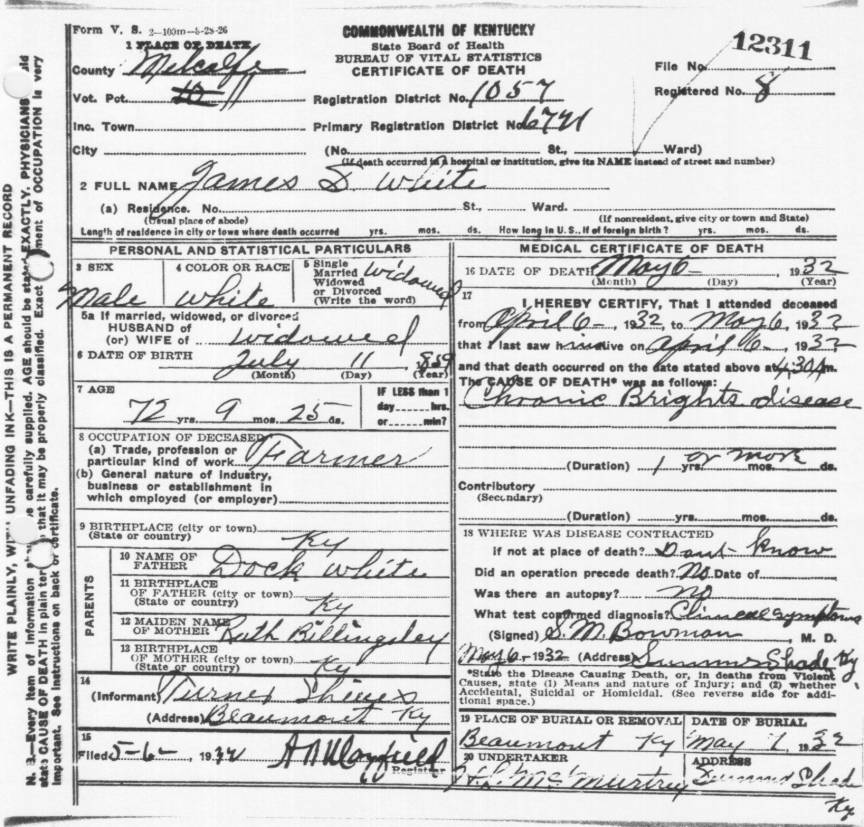 Form V. S. 2-100m-5-28-26
COMMONWEALTH OF KENTUCKY
State Board of Health
BUREAU OF VITAL STATISTICS
CERTIFICATE OF DEATH
12311
File No.
Registered No. 8
1 PLACE OF DEATH
County Metcalfe
Vot. Pct. 10
Registration District No. 1057
Inc. Town
Primary Registration District No. 6721
City (No. St., Ward)
(If death occurred in a hospital or institution, give its NAME instead of street and number)
2 FULL NAME James D. White
(a) Residence. No. St., Ward.
(Usual place of abode) (If nonresident, give city or town and State)
Length of residence in city or town where death occurred yrs. mos. ds. How long in U.S., if of foreign birth? yrs. mos. ds.
PERSONAL AND STATISTICAL PARTICULARS
3 SEX Male
4 COLOR OR RACE White
5 Single
Married
Widowed
or Divorced
(Write the word)
Widowed
5a If married, widowed, or divorced
HUSBAND of
(or) WIFE of widowed
6 DATE OF BIRTH July 11 859
(Month) (Day) (Year)
7 AGE
72 yrs. 9 mos. 25 ds.
IF LESS than 1
day hrs.
or min?
8 OCCUPATION OF DECEASED
(a) Trade, profession or
particular kind of work Farmer
(b) General nature of Industry,
business or establishment in
which employed (or employer)
9 BIRTHPLACE (city or town)
(State or country) Ky
PARENTS
10 NAME OF
FATHER Dock White
11 BIRTHPLACE
OF FATHER (city or town)
(State or country) Ky
12 MAIDEN NAME
OF MOTHER Ruth Billingsley
13 BIRTHPLACE
OF MOTHER (city or town)
(State or country) Ky
14
(Informant) Turner
(Address) Beaumont Ky
15
Filed 5-6- 1932
Registrar
MEDICAL CERTIFICATE OF DEATH
16 DATE OF DEATH May 6- 1932
(Month) (Day) (Year)
17
I HEREBY CERTIFY, That I attended deceased
from April 6-, 1932, to May 6, 1932
that I last saw him alive on April 6-, 1932
and that death occurred on the date stated above at 4:30 A m.
The CAUSE OF DEATH* was as follows:
Chronic Brights disease
(Duration) 1 yrs. or more mos. ds.
Contributory
(Secondary)
(Duration) yrs. mos. ds.
18 WHERE WAS DISEASE CONTRACTED
if not at place of death? Dont know
Did an operation precede death? No Date of
Was there an autopsy? no
What test confirmed diagnosis? Clinical symptoms
(Signed) S. M. Bowman M. D.
May 6- 1932 (Address) Summer Shade Ky
*State the Disease Causing Death, or, in deaths from Violent
Causes, state (1) Means and nature of Injury; and (2) whether
Accidental, Suicidal or Homicidal. (See reverse side for addi-
tional space.)
19 PLACE OF BURIAL OR REMOVAL
Beaumont Ky
DATE OF BURIAL
May 7, 1932
20 UNDERTAKER
H. L. McMurtrey
ADDRESS
Summer Shade
Ky
WRITE PLAINLY, WITH UNFADING INK—THIS IS A PERMANENT RECORD
N. B.—Every item of information carefully supplied. AGE should be stated EXACTLY. PHYSICIANS
state CAUSE OF DEATH in plain that it may be properly classified. Exact of OCCUPATION is very
important. See instructions on back of certificate.